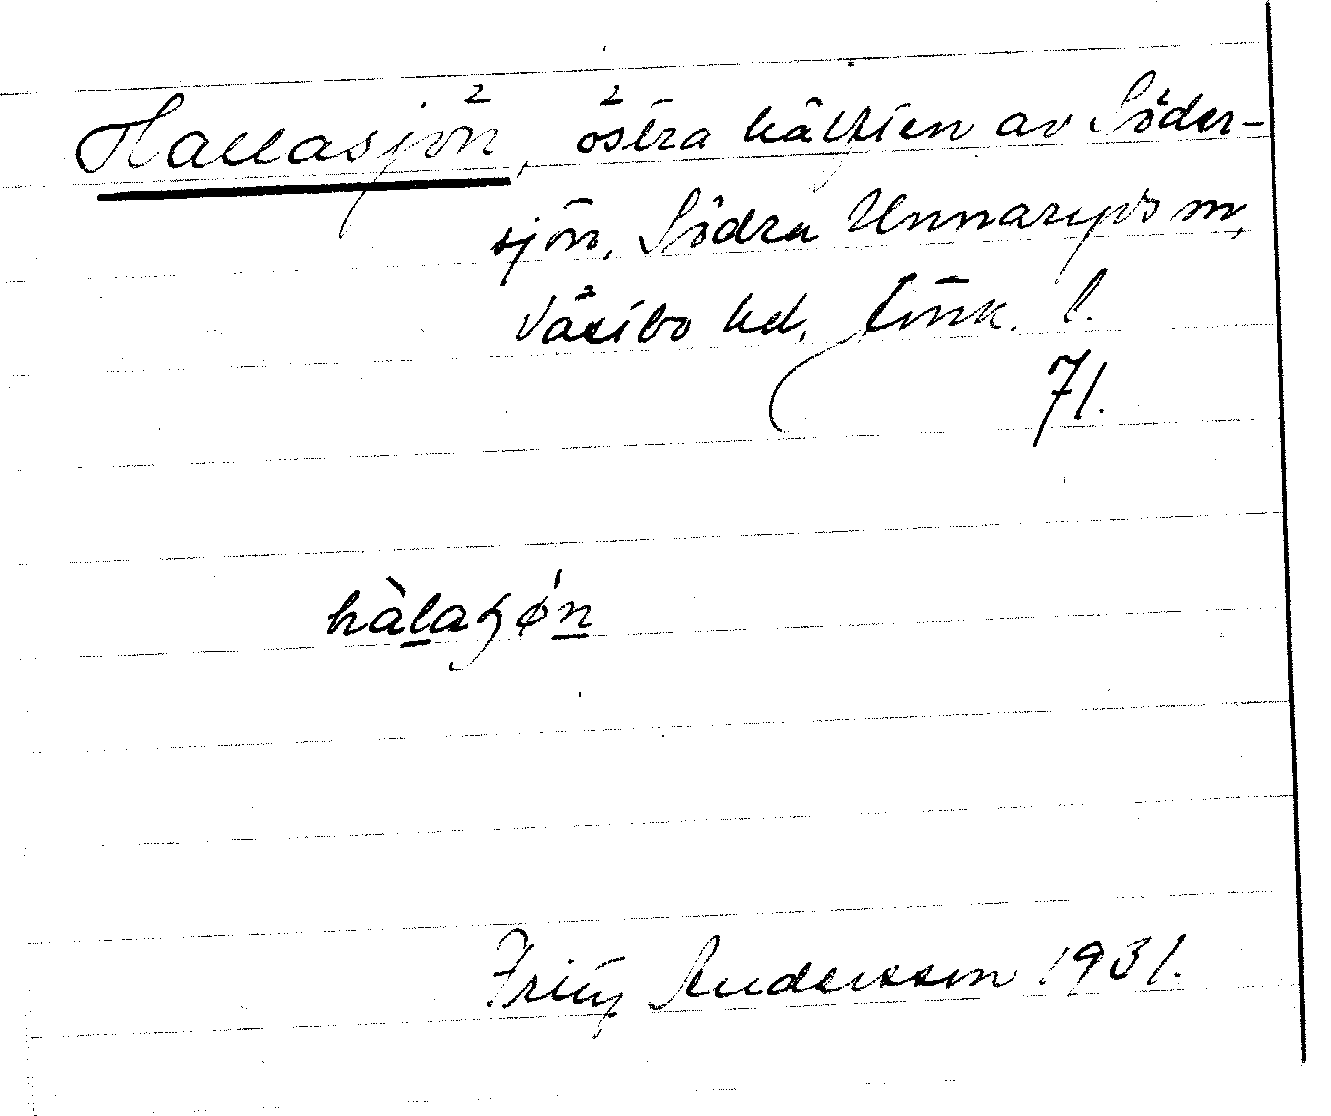 Hallasjön, östra hälften av Söder-
sjön, Södra Unnaryds sn,
Västbo hd, Jönk. l.
71.
hàlaʃǿn
Fritz Andersson 1931.